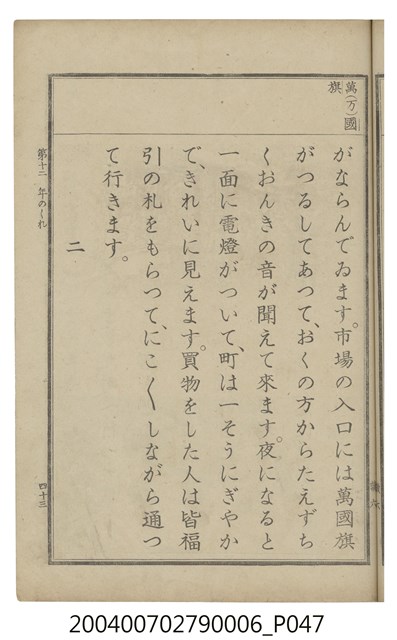 萬(万)國
旗
がならんでゐます。市場の入口には萬國旗
がつるしてあつて、おくの方からたえずち
くおんきの音が聞えて來ます。夜になると
一面に電燈がついて、町は一そうにぎやか
で、きれいに見えます。買物をした人は皆福
引の札をもらつて、にこ〱しながら通つ
て行きます。
二
第十二 年のくれ
四十三
200400702790006_P047